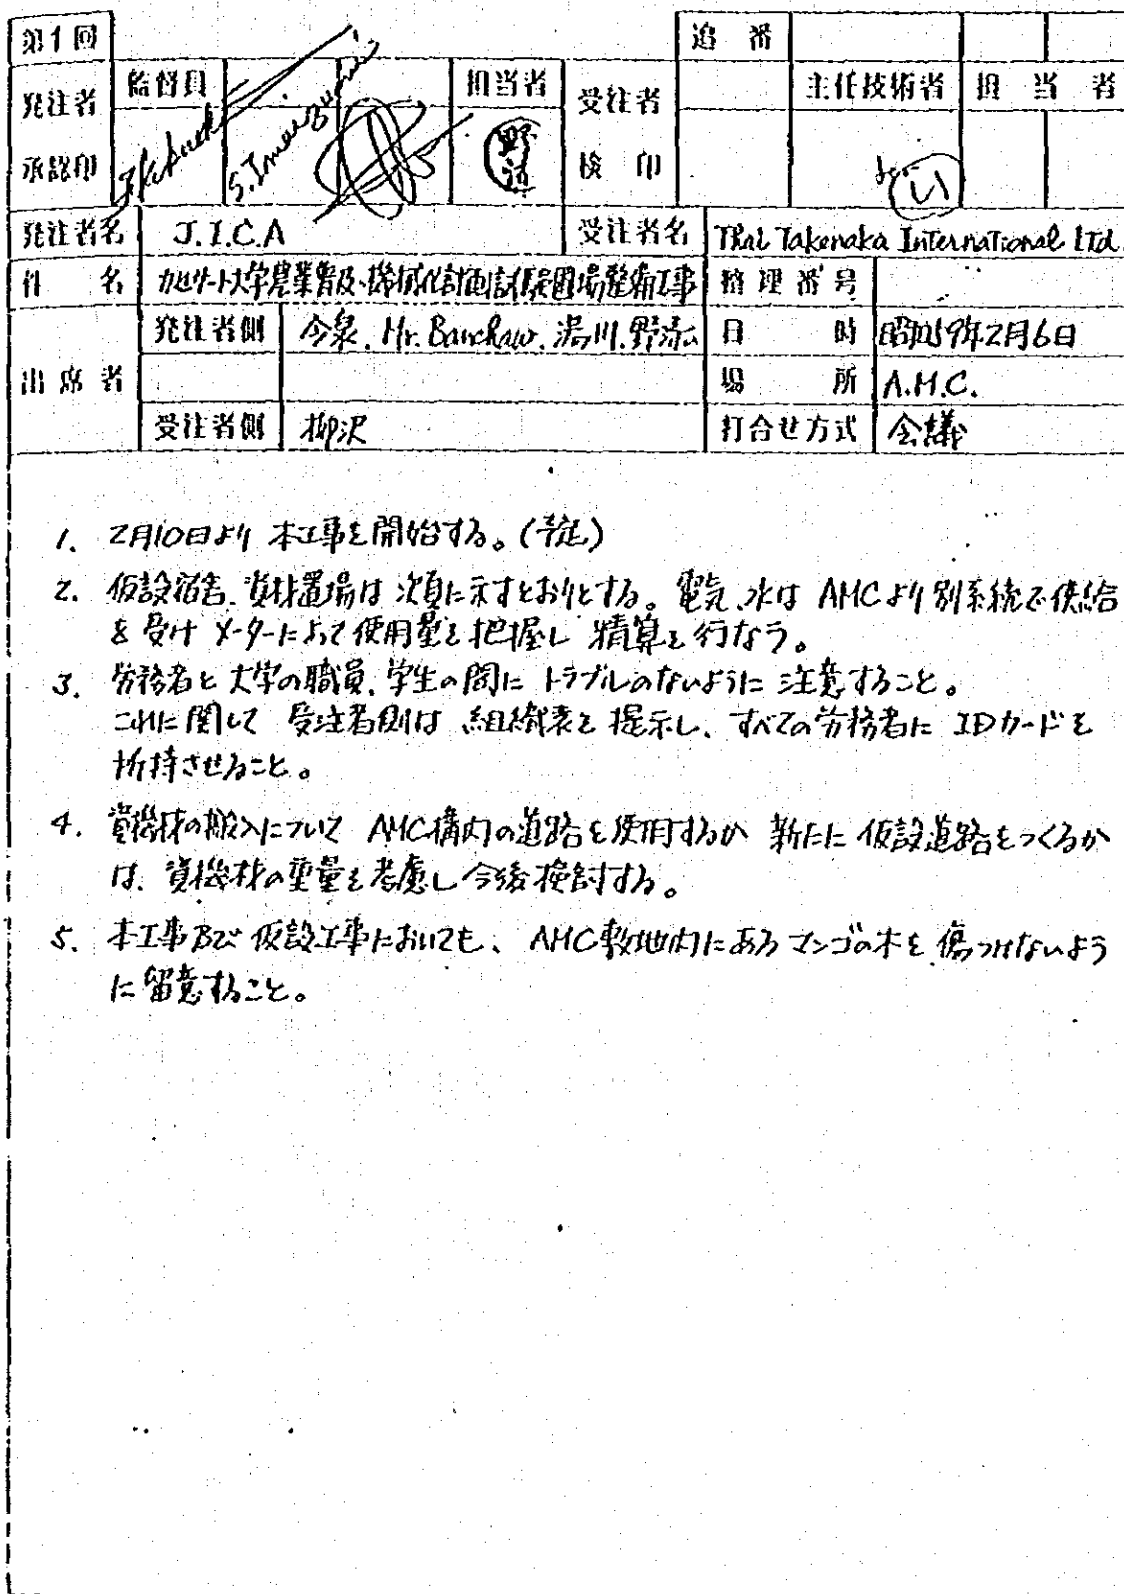 第1回 追番
発注者 監督員 担当者 受注者 主任技術者 担当者
承認印 S. Imaizumi 検印
発注者名 J.I.C.A 受注者名 Thai Takenaka International Ltd.
件名 カセサート大学農業普及・機械化計画試験圃場整備工事 整理番号
発注者側 今泉. Mr. Banchaw. 湯川. 野添 日時 昭和59年2月6日
出席者 場所 A.M.C.
受注者側 柳沢 打合せ方式 会議
1. 2月10日より 本工事を開始する。(予定)
2. 仮設宿舎、資材置場は 次頁に示すとおりとする。電気、水は AMCより別系統で供給
を受け メーターによって使用量を把握し 精算を行なう。
3. 労務者と大学の職員、学生の間に トラブルのないように 注意すること。
これに関して 受注者側は 組織表を提示し、すべての労務者に IDカードを
所持させること。
4. 資機材の搬入について AMC構内の道路を使用するか 新たに仮設道路をつくるか
は、資機材の重量を考慮し今後検討する。
5. 本工事及び仮設工事においても、AMC敷地内にあるマンゴの木を傷つけないよう
に留意すること。